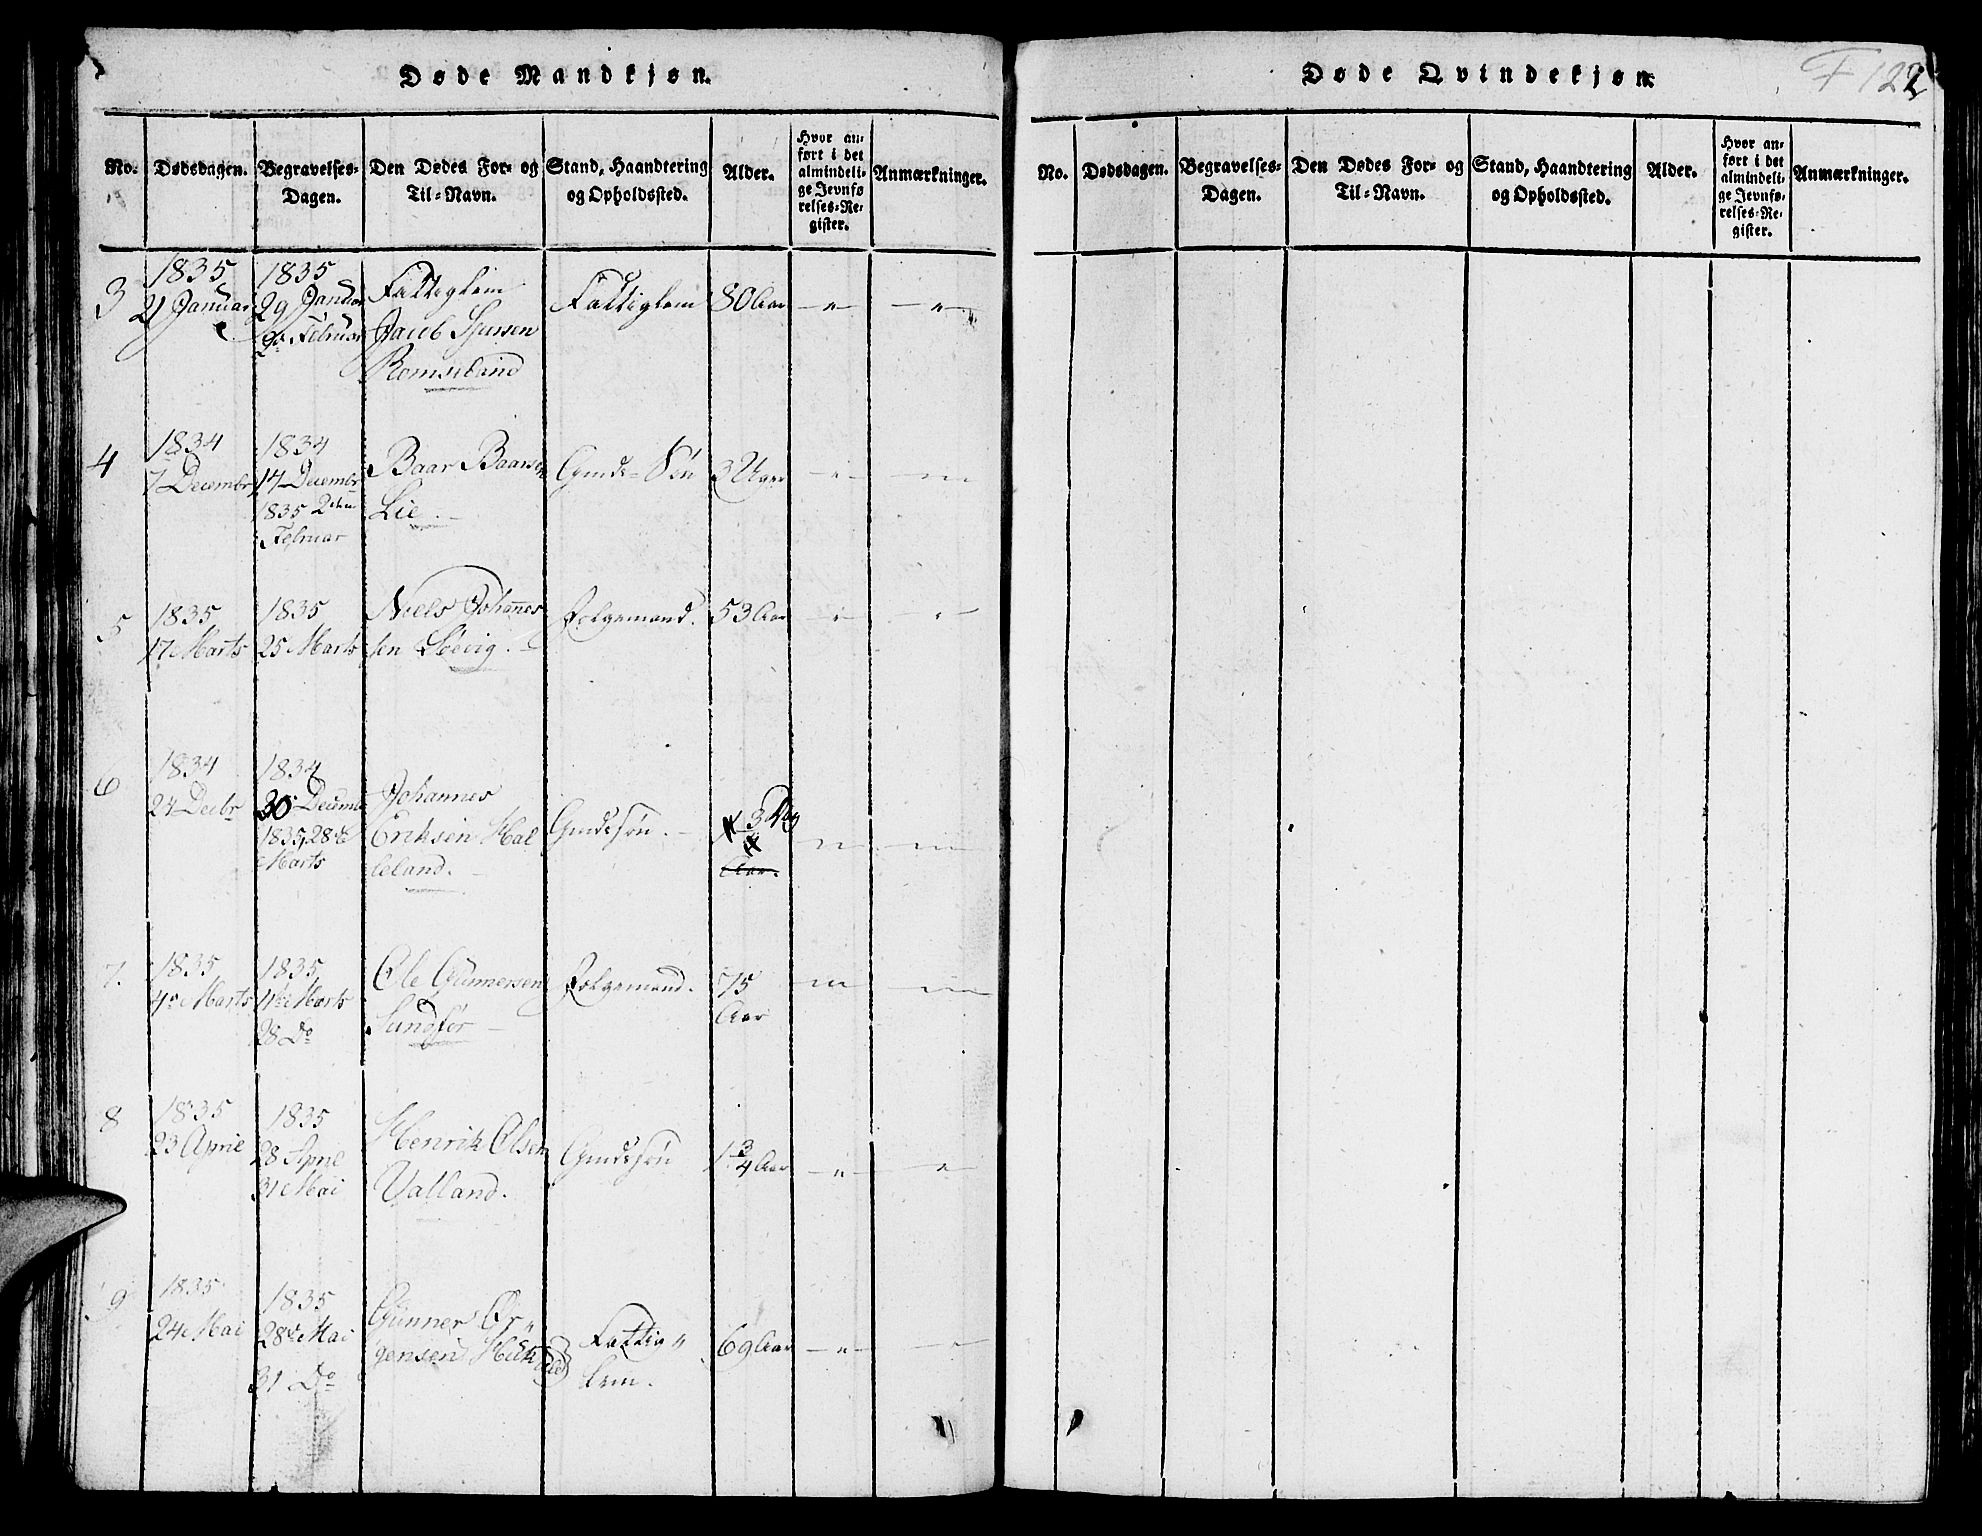 Døde Mandkjøn.
No.
Dødsdagen.
Begravelses-
Dagen.
Den Dødes For- og
Til-Navn.
Stand, Haandtering
og Opholdssted.
Alder.
Hvor an-
ført i det
almindeli-
ge Jevnfø
relses-Re-
gister.
Anmærkninger.
3
1835
21 Januar
1835
29 Januar
Februar
Fattiglem
Jacob Sjursen
Romseland
Fattiglem
80 Aar
4
1834
7 Decembr
1834
17 Decembr
1835 2den
Februar
Baar Baarsen
Lie.
Gmds-Søn
3 Uger
5
1835
17 Marts
1835
25 Marts
Niels Johannes
sen Søevig.
Folgemand.
53 Aar
6
1834
24 Decbr
1834
30 Decemb
1835, 28de
Marts
Johannes
Eriksen Hal
leland.
Gmdssøn.
3
Aar.
7.
1835
4de Marts
1835
11te Marts
28 Do
Ole Gunnersen
Sundfør
Folgemand.
75
Aar
8
1835
23 April
1835
28 April
31 Mai
Henrik Olsen
Valland.
Gmdssøn
1 3/4 Aar
9
1835
24 Mai
1835
28de Mai
31 Do
Gunner Ør„
gensen
Fattig„
lem.
69 Aar
Døde Qvindekjøn.
F 122
No.
Dødsdagen.
Begravelses-
Dagen.
Den Dødes For- og
Til-Navn.
Stand, Haandtering
og Opholdssted.
Alder.
Hvor an-
ført i det
almindeli-
ge Jevnfø-
relses-Re-
gister.
Anmærkninger.